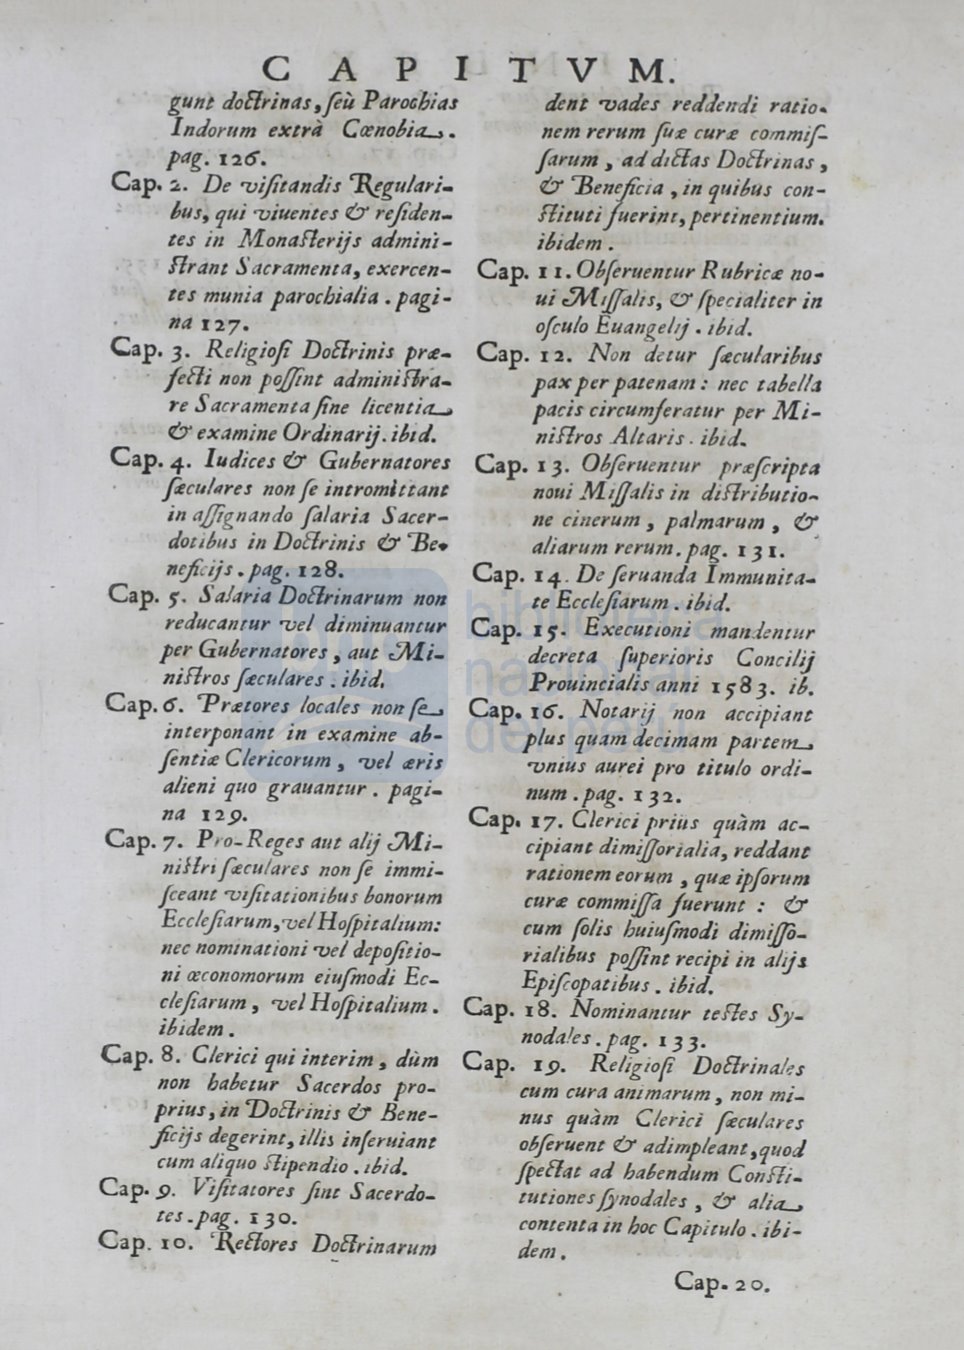 CAPITVM.
gunt doctrinas, ſeù Parochias
Indorum extrà Cœnobia.
pag. 126.
Cap. 2. De viſitandis Regulari-
bus, qui viuentes & reſiden-
tes in Monaſterijs admini-
ſtrant Sacramenta, exercen-
tes munia parochialia. pagi-
na 127.
Cap. 3. Religioſi Doctrinis præ-
fecti non poſſint adminiſtra-
re Sacramenta ſine licentia
& examine Ordinarij. ibid.
Cap. 4. Iudices & Gubernatores
ſæculares non ſe intromittant
in aſſignando ſalaria Sacer-
dotibus in Doctrinis & Be-
neficijs. pag. 128.
Cap. 5. Salaria Doctrinarum non
reducantur vel diminuantur
per Gubernatores, aut Mi-
niſtros ſæculares. ibid.
Cap. 6. Prætores locales non ſe
interponant in examine ab-
ſentiæ Clericorum, vel æris
alieni quo grauantur. pagi-
na 129.
Cap. 7. Pro-Reges aut alij Mi-
niſtri ſæculares non ſe immi-
ſceant viſitationibus bonorum
Eccleſiarum, vel Hoſpitalium:
nec nominationi vel depoſitio-
ni œconomorum eiuſmodi Ec-
cleſiarum, vel Hoſpitalium.
ibidem.
Cap. 8. Clerici qui interim, dùm
non habetur Sacerdos pro-
prius, in Doctrinis & Bene-
ficijs degerint, illis inſeruiant
cum aliquo ſtipendio. ibid.
Cap. 9. Viſitatores ſint Sacerdo-
tes. pag. 130.
Cap. 10. Rectores Doctrinarum
dent vades reddendi ratio-
nem rerum ſuæ curæ commiſ-
ſarum, ad dictas Doctrinas,
& Beneficia, in quibus con-
ſtituti fuerint, pertinentium.
ibidem.
Cap. 11. Obſeruentur Rubricæ no-
ui Miſſalis, & ſpecialiter in
oſculo Euangelij. ibid.
Cap. 12. Non detur ſæcularibus
pax per patenam: nec tabella
pacis circumferatur per Mi-
niſtros Altaris. ibid.
Cap. 13. Obſeruentur præſcripta
noui Miſſalis in diſtributio-
ne cinerum, palmarum, &
aliarum rerum. pag. 131.
Cap. 14. De ſeruanda Immunita-
te Eccleſiarum. ibid.
Cap. 15. Executioni mandentur
decreta ſuperioris Concilij
Prouincialis anni 1583. ib.
Cap. 16. Notarij non accipiant
plus quam decimam partem
vnius aurei pro titulo ordi-
num. pag. 132.
Cap. 17. Clerici priùs quàm ac-
cipiant dimiſſorialia, reddant
rationem eorum, quæ ipſorum
curæ commiſſa fuerunt: &
cum ſolis huiuſmodi dimiſſo-
rialibus poſſint recipi in alijs
Epiſcopatibus. ibid.
Cap. 18. Nominantur teſtes Sy-
nodales. pag. 133.
Cap. 19. Religioſi Doctrinales
cum cura animarum, non mi-
nus quàm Clerici ſæculares
obſeruent & adimpleant, quod
ſpectat ad habendum Conſti-
tutiones ſynodales, & alia
contenta in hoc Capitulo. ibi-
dem.
Cap. 20.
biblioteca
nacional
del perú